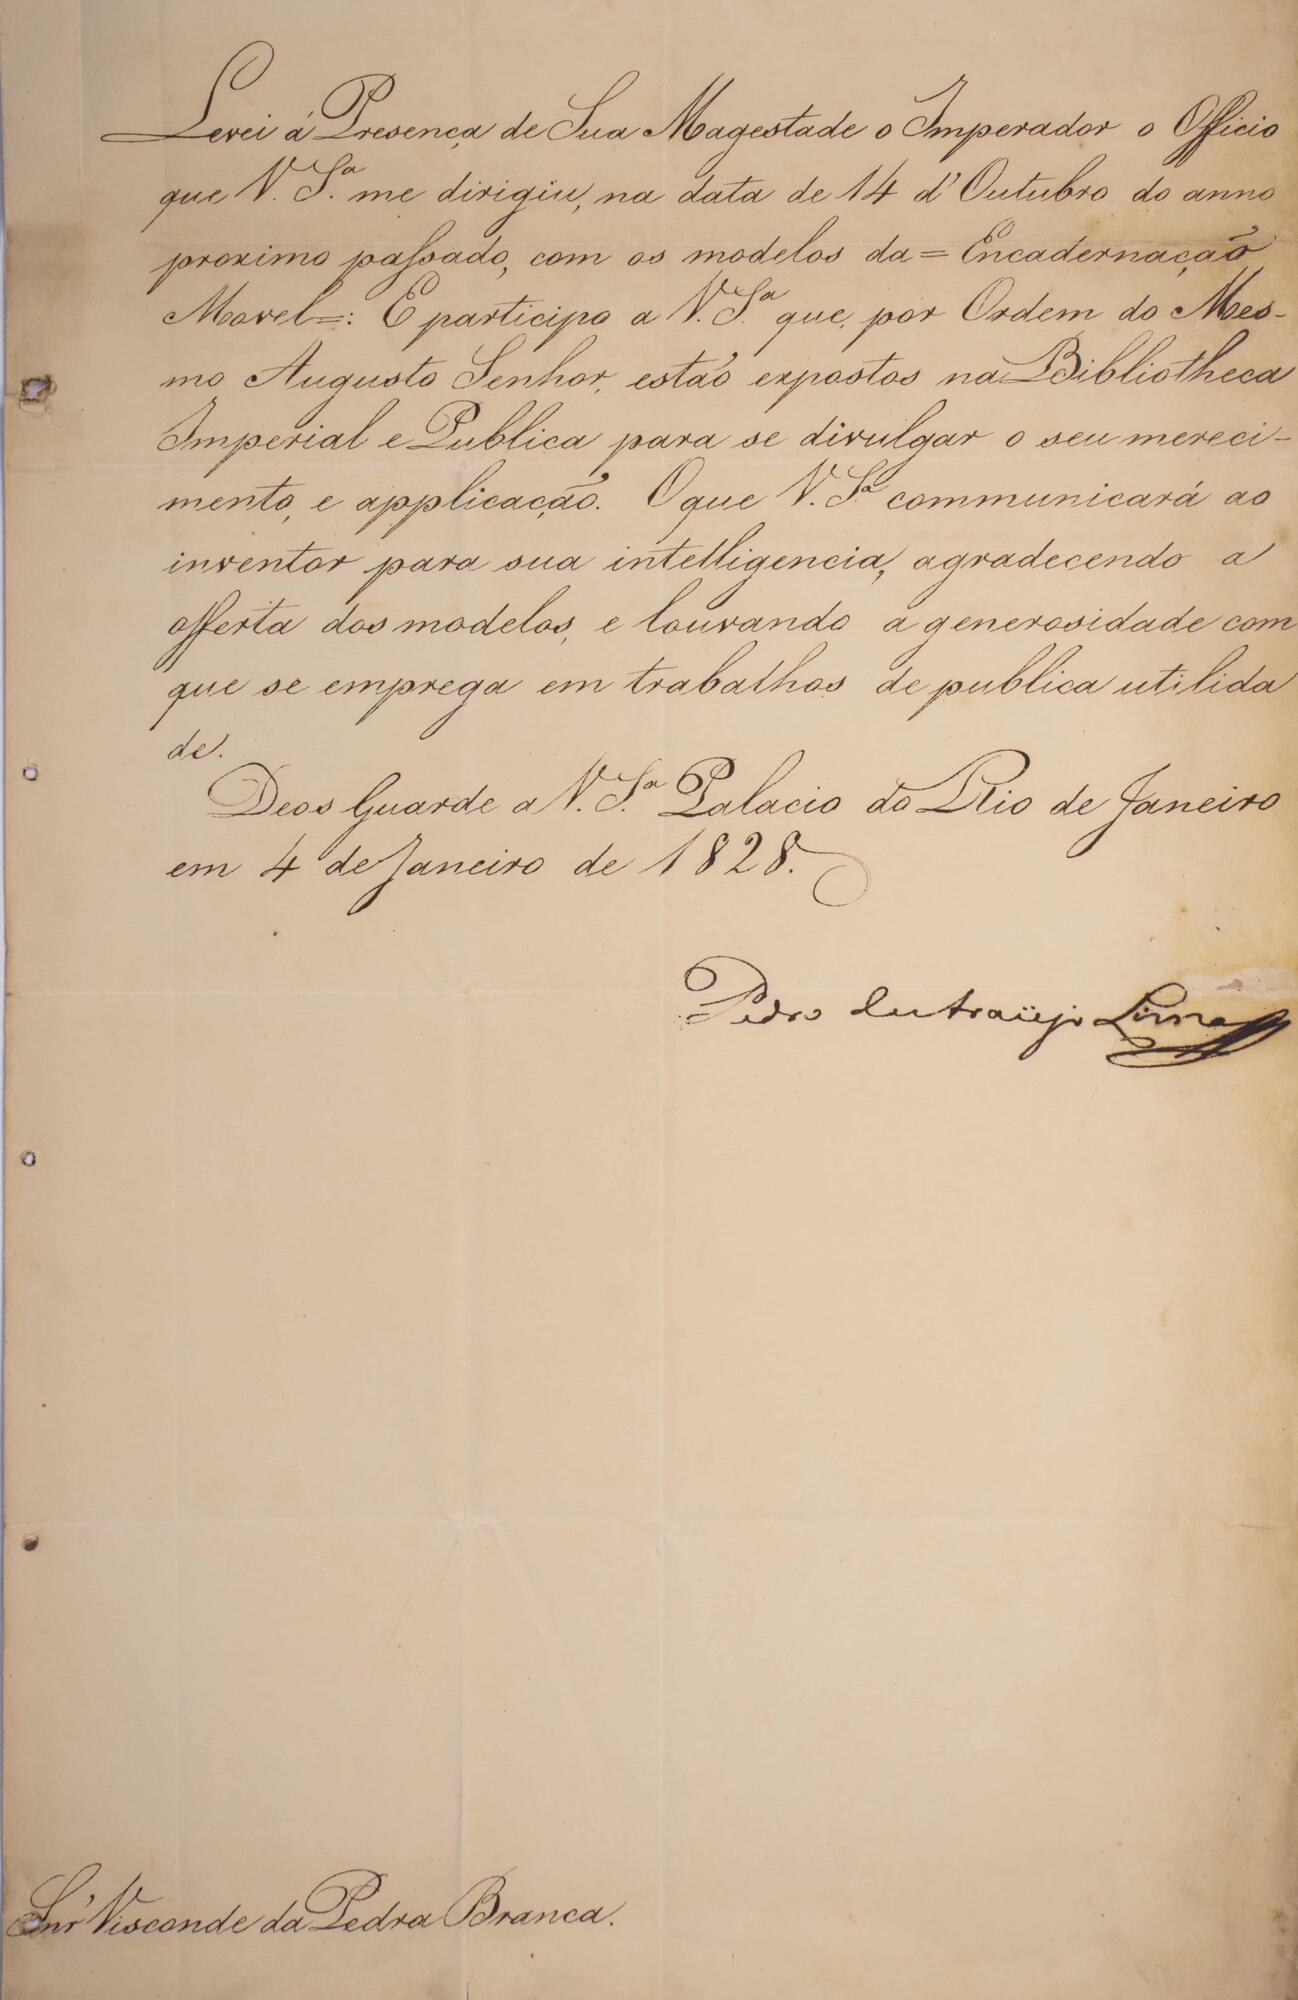 Levei á Presença de Sua Magestade o Imperador o Officio
que V. S.ª me dirigiu, na data de 14 d'Outubro do anno
proximo passado, com os modelos da = Encadernação
Movel =: E participo a V. S.ª que, por Ordem do Mes-
mo Augusto Senhor, estão expostos na Bibliotheca
Imperial e Publica para se divulgar o seu mereci-
mento, e applicação. O que V. S.ª communicará ao
inventor para sua intelligencia, agradecendo a
offerta dos modelos, e louvando a generosidade com
que se emprega em trabalhos de publica utilida
de.
Deos Guarde a V. S.ª Palacio do Rio de Janeiro
em 4 de Janeiro de 1828.
Pedro de Araüjo Lima
Snr' Visconde da Pedra Branca.